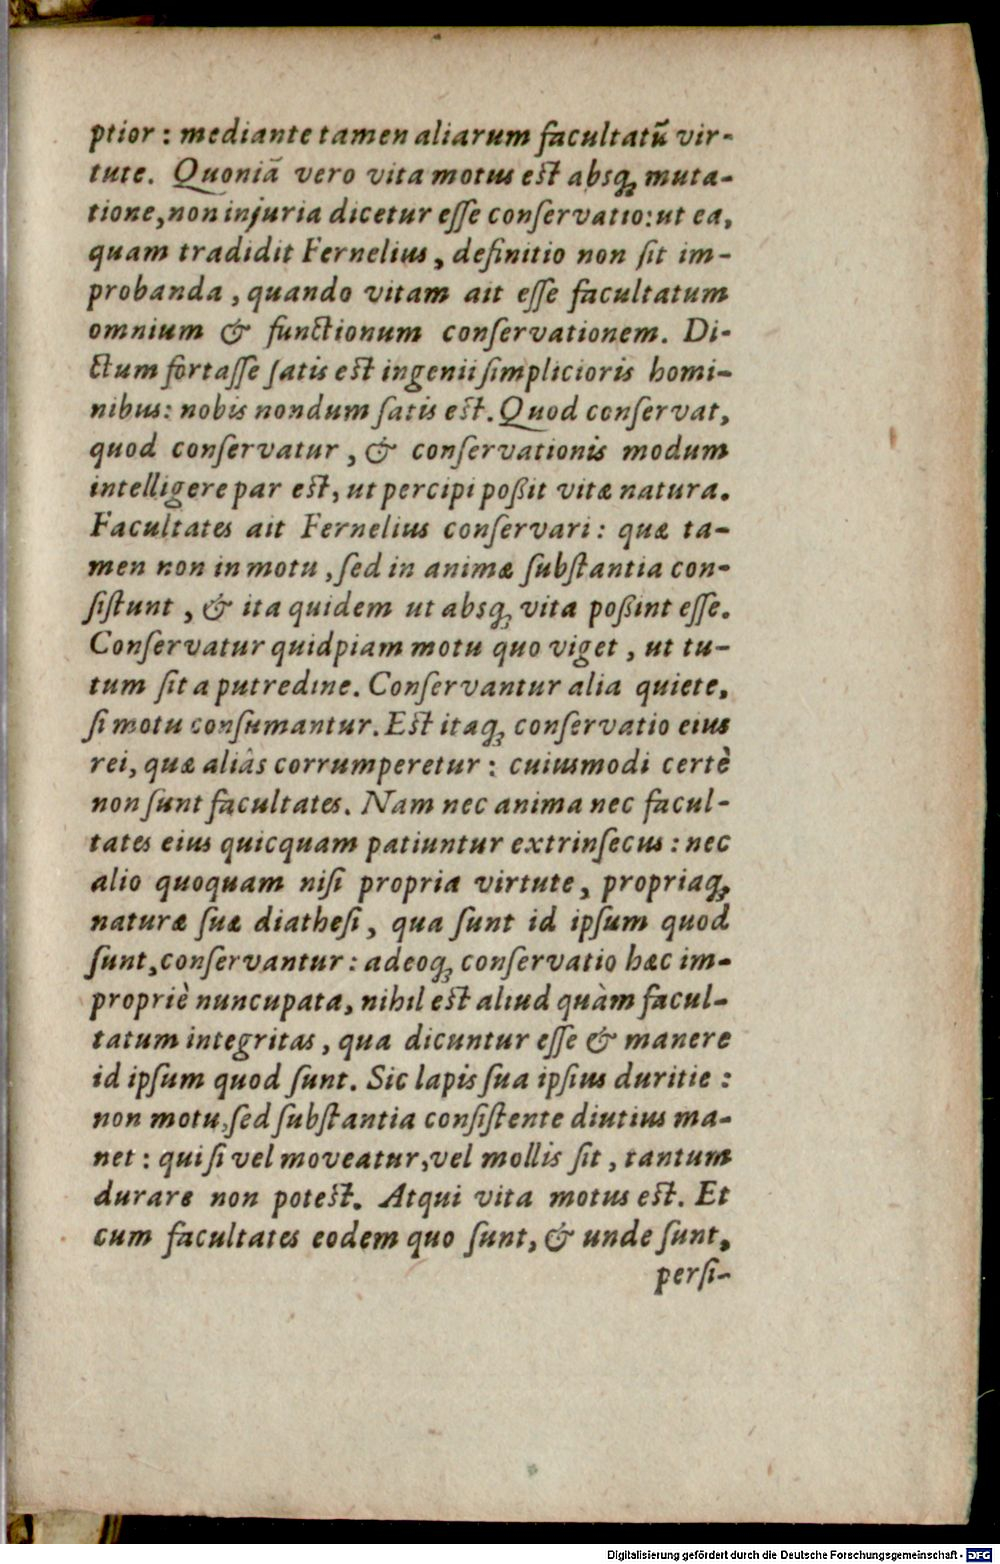 ptior: mediante tamen aliarum facultatũ vir-
tute. Quoniã vero vita motus est absq; muta-
tione, non injuria dicetur eſſe conſervatio: ut ea,
quam tradidit Fernelius, definitio non ſit im-
probanda, quando vitam ait eſſe facultatum
omnium & functionum conſervationem. Di-
ctum fortaſſe ſatis est ingenii ſimplicioris homi-
nibus: nobis nondum ſatis est. Quod conſervat,
quod conſervatur, & conſervationis modum
intelligere par est, ut percipi poßit vitæ natura.
Facultates ait Fernelius conſervari: quæ ta-
men non in motu, ſed in animæ ſubſtantia con-
ſiſtunt, & ita quidem ut absq; vita poßint eſſe.
Conſervatur quidpiam motu quo viget, ut tu-
tum ſit a putredine. Conſervantur alia quiete,
ſi motu conſumantur. Est itaq; conſervatio eius
rei, quæ aliâs corrumperetur: cuiusmodi certè
non ſunt facultates. Nam nec anima nec facul-
tates eius quicquam patiuntur extrinſecus: nec
alio quoquam niſi propria virtute, propriaq;
naturæ ſuæ diatheſi, qua ſunt id ipſum quod
ſunt, conſervantur: adeoq; conſervatio hæc im-
propriè nuncupata, nihil est aliud quàm facul-
tatum integritas, qua dicuntur eſſe & manere
id ipſum quod ſunt. Sic lapis ſua ipſius duritie:
non motu, ſed ſubſtantia conſiſtente diutius ma-
net: qui ſi vel moveatur, vel mollis ſit, tantum
durare non potest. Atqui vita motus est. Et
cum facultates eodem quo ſunt, & unde ſunt,
perſi-
Digitalisierung gefördert durch die Deutsche Forschungsgemeinschaft - DFG